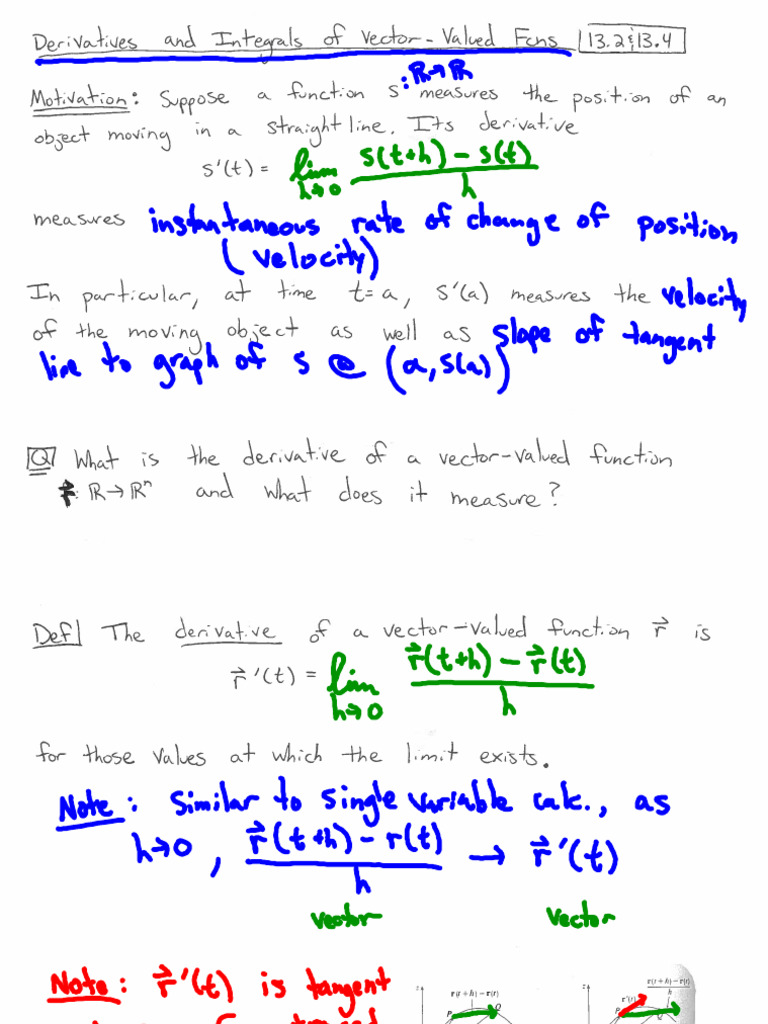 Derivatives and Integrals of Vector-Valued Fcns 13.2 & 13.4
Motivation: Suppose a function s : ℝ→ℝ measures the position of an
object moving in a straight line. Its derivative
s'(t) = lim h→0 s(t+h) − s(t) / h
measures instantaneous rate of change of position
(velocity)
In particular, at time t=a, s'(a) measures the velocity
of the moving object as well as slope of tangent
line to graph of s @ (a, s(a))
Q What is the derivative of a vector-valued function
r⃗: ℝ→ℝⁿ and what does it measure?
Def] The derivative of a vector-valued function r⃗ is
r⃗'(t) = lim h→0 r⃗(t+h) − r⃗(t) / h
for those values at which the limit exists.
Note: Similar to single variable calc., as
h→0, r⃗(t+h) − r(t) / h → r⃗'(t)
vector vector
Note: r⃗'(t) is tangent
r(t + h) − r(t)
P Q
r(t + h) − r(t) / h
r'(t)
P Q